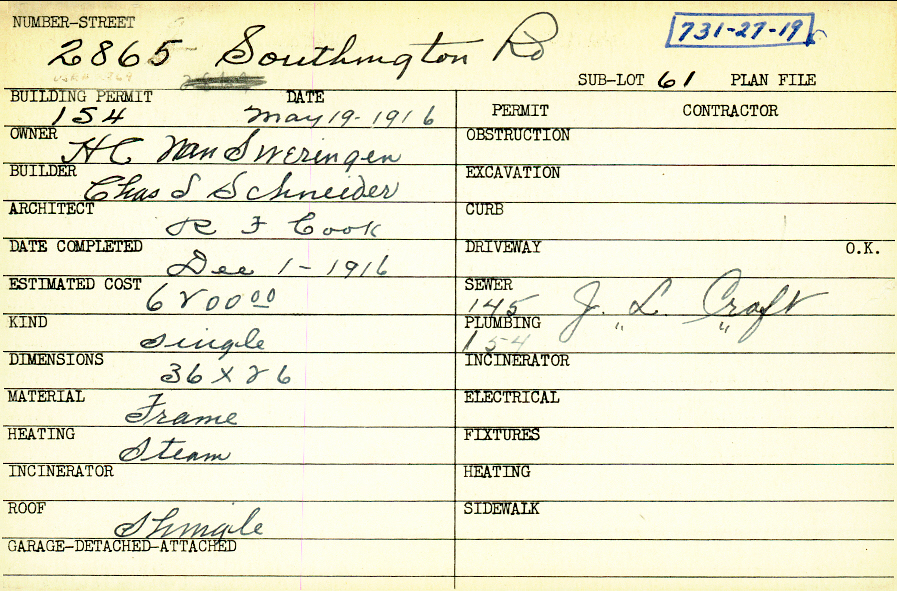 NUMBER-STREET
2865 Southington Rd
731-27-19
SUB-LOT 61 PLAN FILE
BUILDING PERMIT DATE
154 May 19-1916
PERMIT CONTRACTOR
OWNER
H C Van Sweringen
OBSTRUCTION
BUILDER
Chas S Schneider
EXCAVATION
ARCHITECT
R F Cook
CURB
DATE COMPLETED
Dec 1-1916
DRIVEWAY O.K.
ESTIMATED COST
6200 00
SEWER
145 J. L. Craft
KIND
Single
PLUMBING
154 " "
DIMENSIONS
36 x 26
INCINERATOR
MATERIAL
Frame
ELECTRICAL
HEATING
Steam
FIXTURES
INCINERATOR
HEATING
ROOF
Shingle
SIDEWALK
GARAGE-DETACHED-ATTACHED